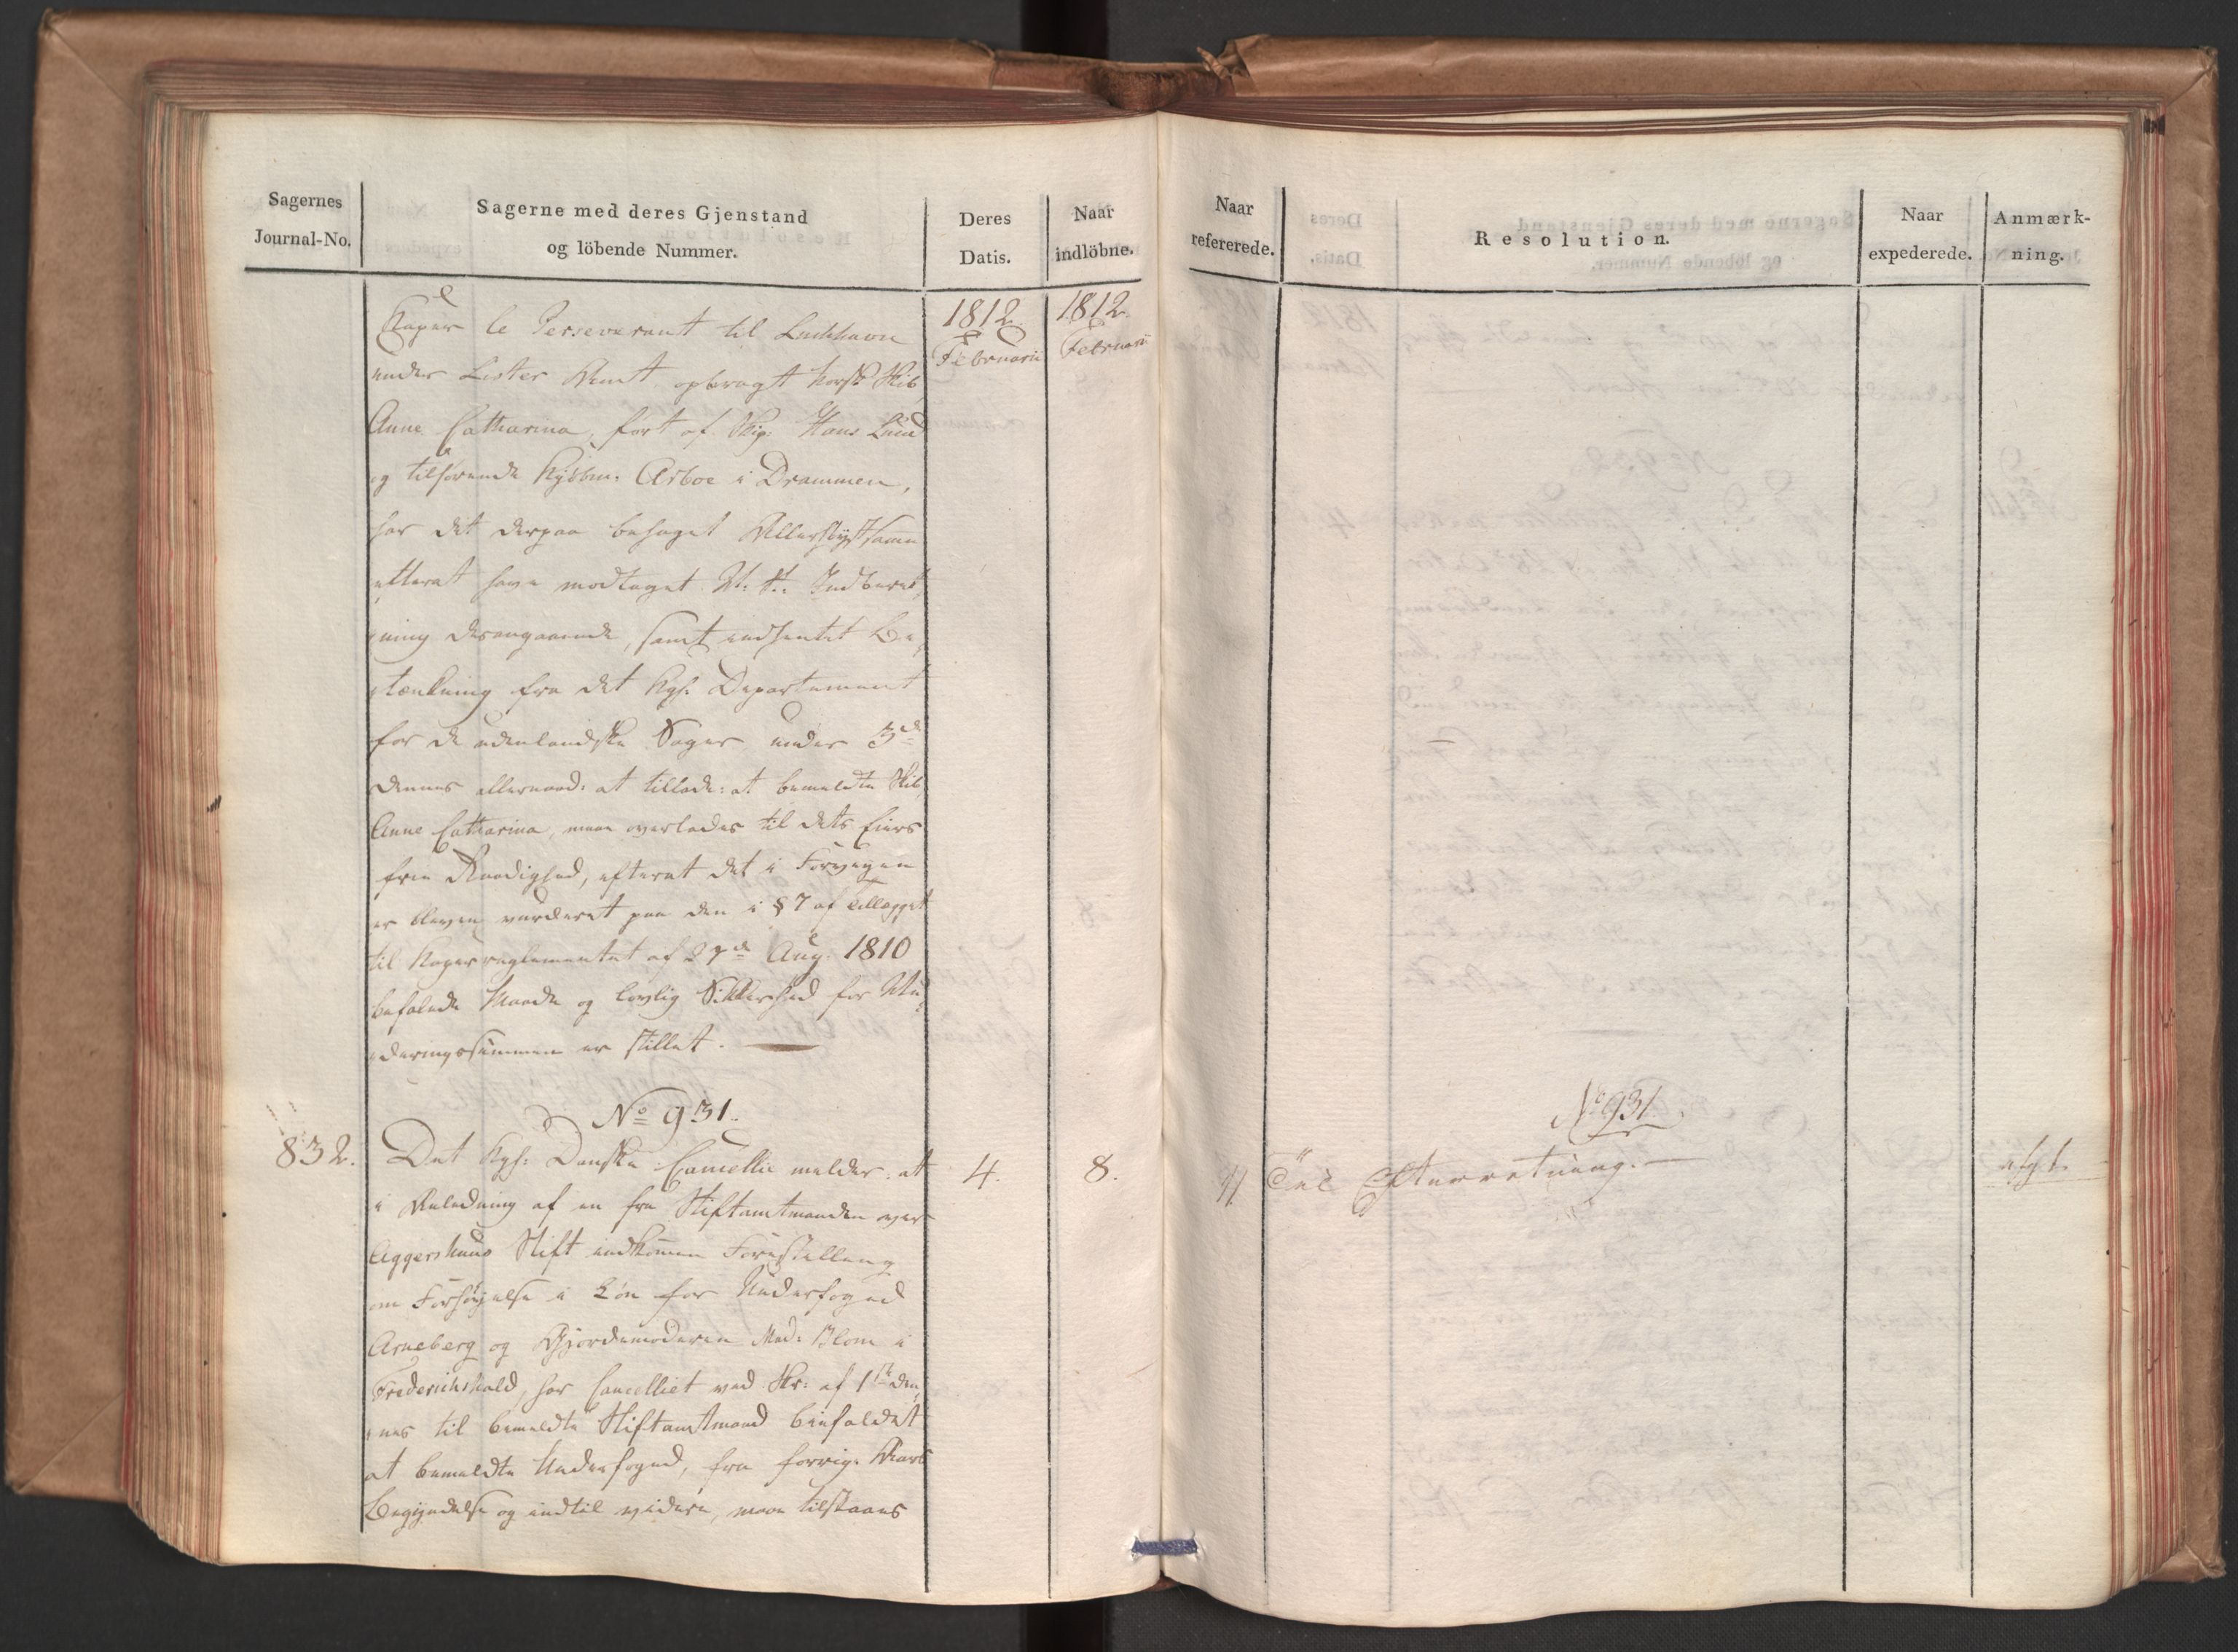 Sagernes
Journal-No.
Sagerne med deres Gjenstand
og löbende Nummer.
Deres
Datis.
Naar
indlöbne.
1812
Februarii
1812.
Februarii
Caper le Perseverant til Lushavn
under Lister Amt opbragt norsk Skib
Anne Catharina, ført af Skip: Hans Lund
og tilhørende Kjøbm: Arboe i Drammen,
har det derpaa behaget Allerhøystsamme
efterat have modtaget Indberet
ning desangaaende, samt indhentet Be
tænkning fra det Kgl. Departement
for de udenlandske Sager under 3de
dennes allernaad: at tillade: at bemeldte Skib,
Anne Catharina, maa overlades til dets Eiers
frie Raadighed, efterat det i Forveyen
er bleven vurderet paa den i § 7 af Tillægget
til Kaperreglementet af 27de Aug: 1810
befalede Maade og lovlig Sikkerhed for Vur
deringssummen er stillet. —
No 931.
832.
Det Kgl: Danske Cancellie melder: at
i Anledning af en fra Stiftamtmanden over
Aggershuus Stift indkommen Forestilling
om Forhøyelse i Løn for Underfoged
Arneberg og Gjordemoderen Mad: Blom i
Friderichshald, har Cancelliet ved Skr: af 1ste den
nes til bemeldte Stiftamtmand bifaldet
at bemeldte Underfoged, fra forrige Aars
Begyndelse og indtil videre, maa tilstaaes
4.
8.
Naar
refererede.
Resolution.
Naar
expederede.
Anmærk-
ning.
No 931.
11
Til Efterretning. —
afgt.